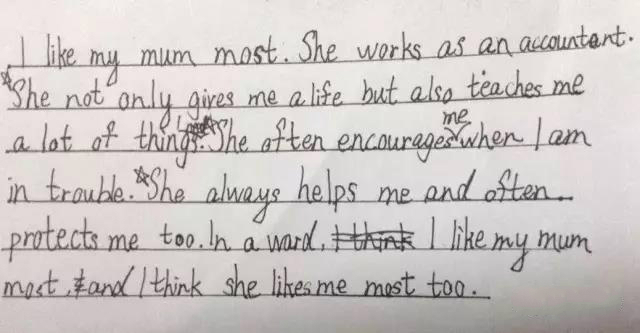 I like my mum most. She works as an accountant.
She not only gives me a life but also teaches me
a lot of things. She often encourages me when I am
in trouble. She always helps me and often
protects me too. In a ward, I think I like my mum
most, and I think she likes me most too.